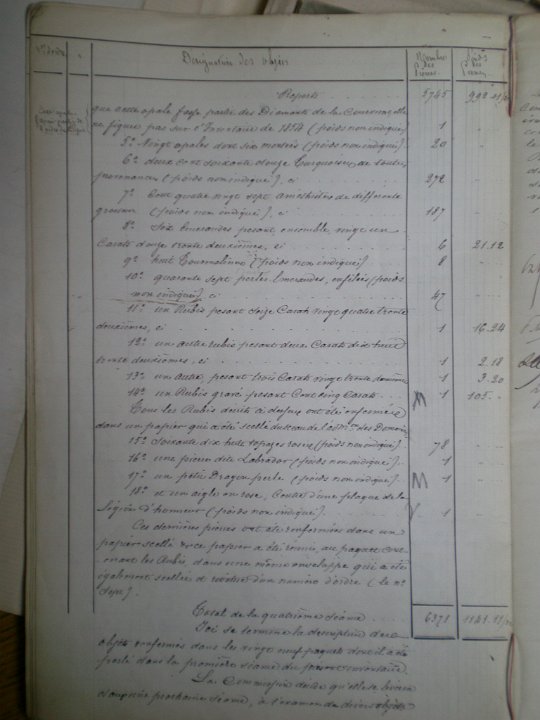 Désignation des objets
Nombre des Pierres
Poids des Pierres
Report 5745 992
que cette opale fasse partie des Diamants de la Couronne, elle
ne figure pas sur l'Inventaire de 1814 (poids non indiqué) 1
5° Vingt opales dont six montées (poids non indiqué) 20
6° deux Cent soixante douze Turquoises de toutes
provenances (poids non indiqué), ci 272
7° Cent quatre vingt sept améthistes de différente
grosseur (poids non indiqué), ci 187
8° Six émeraudes pesant ensemble vingt un
Carats douze trente deuxièmes, ci 6 21.12
9° huit Tourmalines (poids non indiqué) 8
10° quarante sept perles émeraudes, enfilées (poids
non indiqué) ci 47
11° un Rubis pesant seize Carats vingt quatre trente
deuxièmes, ci 1 16.24
12° un autre rubis pesant deux Carats dix huit
trente deuxièmes, ci 1 2.18
13° un autre pesant trois Carats vingt trente deuxième 1 3.20
14° un Rubis gravé pesant Cent cinq Carats 1 105
Tous les Rubis décrits ci dessus ont été enfermés
dans un papier qui a été scellé du sceau de l'adm.on des Domaines
15° Soixante dix huit topazes roses (poids non indiqué) 78
16° une pierre dite Labrador (poids non indiqué) 1
17° un petit Dragon perle (poids non indiqué) 1
18° et un aigle en rose, Centre d'une plaque de la
légion d'honneur (poids non indiqué) 1
Ces dernières pièces ont été renfermées dans un
papier scellé et ce papier a été réuni, au paquet con-
tenant les Rubis, dans une même enveloppe qui a été
également scellée et revêtue d'un numéro d'ordre (le n°
sept).
Total de la quatrième séance 6371
Ici se termine la description des
objets renfermés dans les vingt neuf paquets dont il a été
parlé dans la première séance du présent inventaire.
La Commission décide qu'elle se livrera
dans sa prochaine séance, à l'examen de divers objets